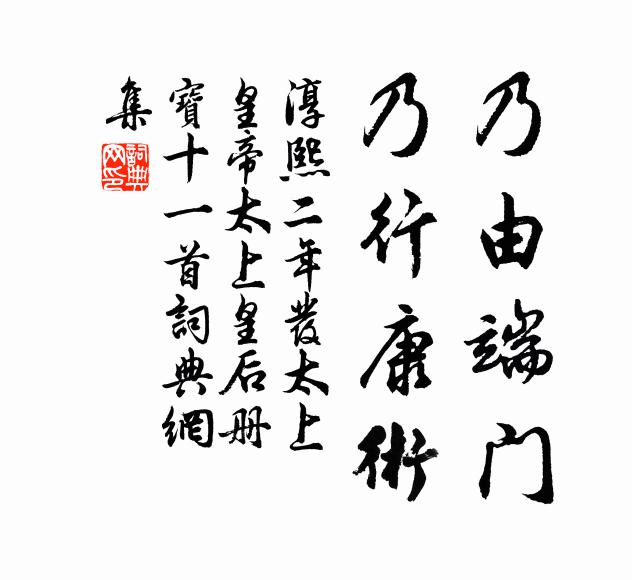 乃由端门
乃行康術
淳熙二年發太上
皇帝太上皇后册
寶十一首詞典網
集
詞典
网印